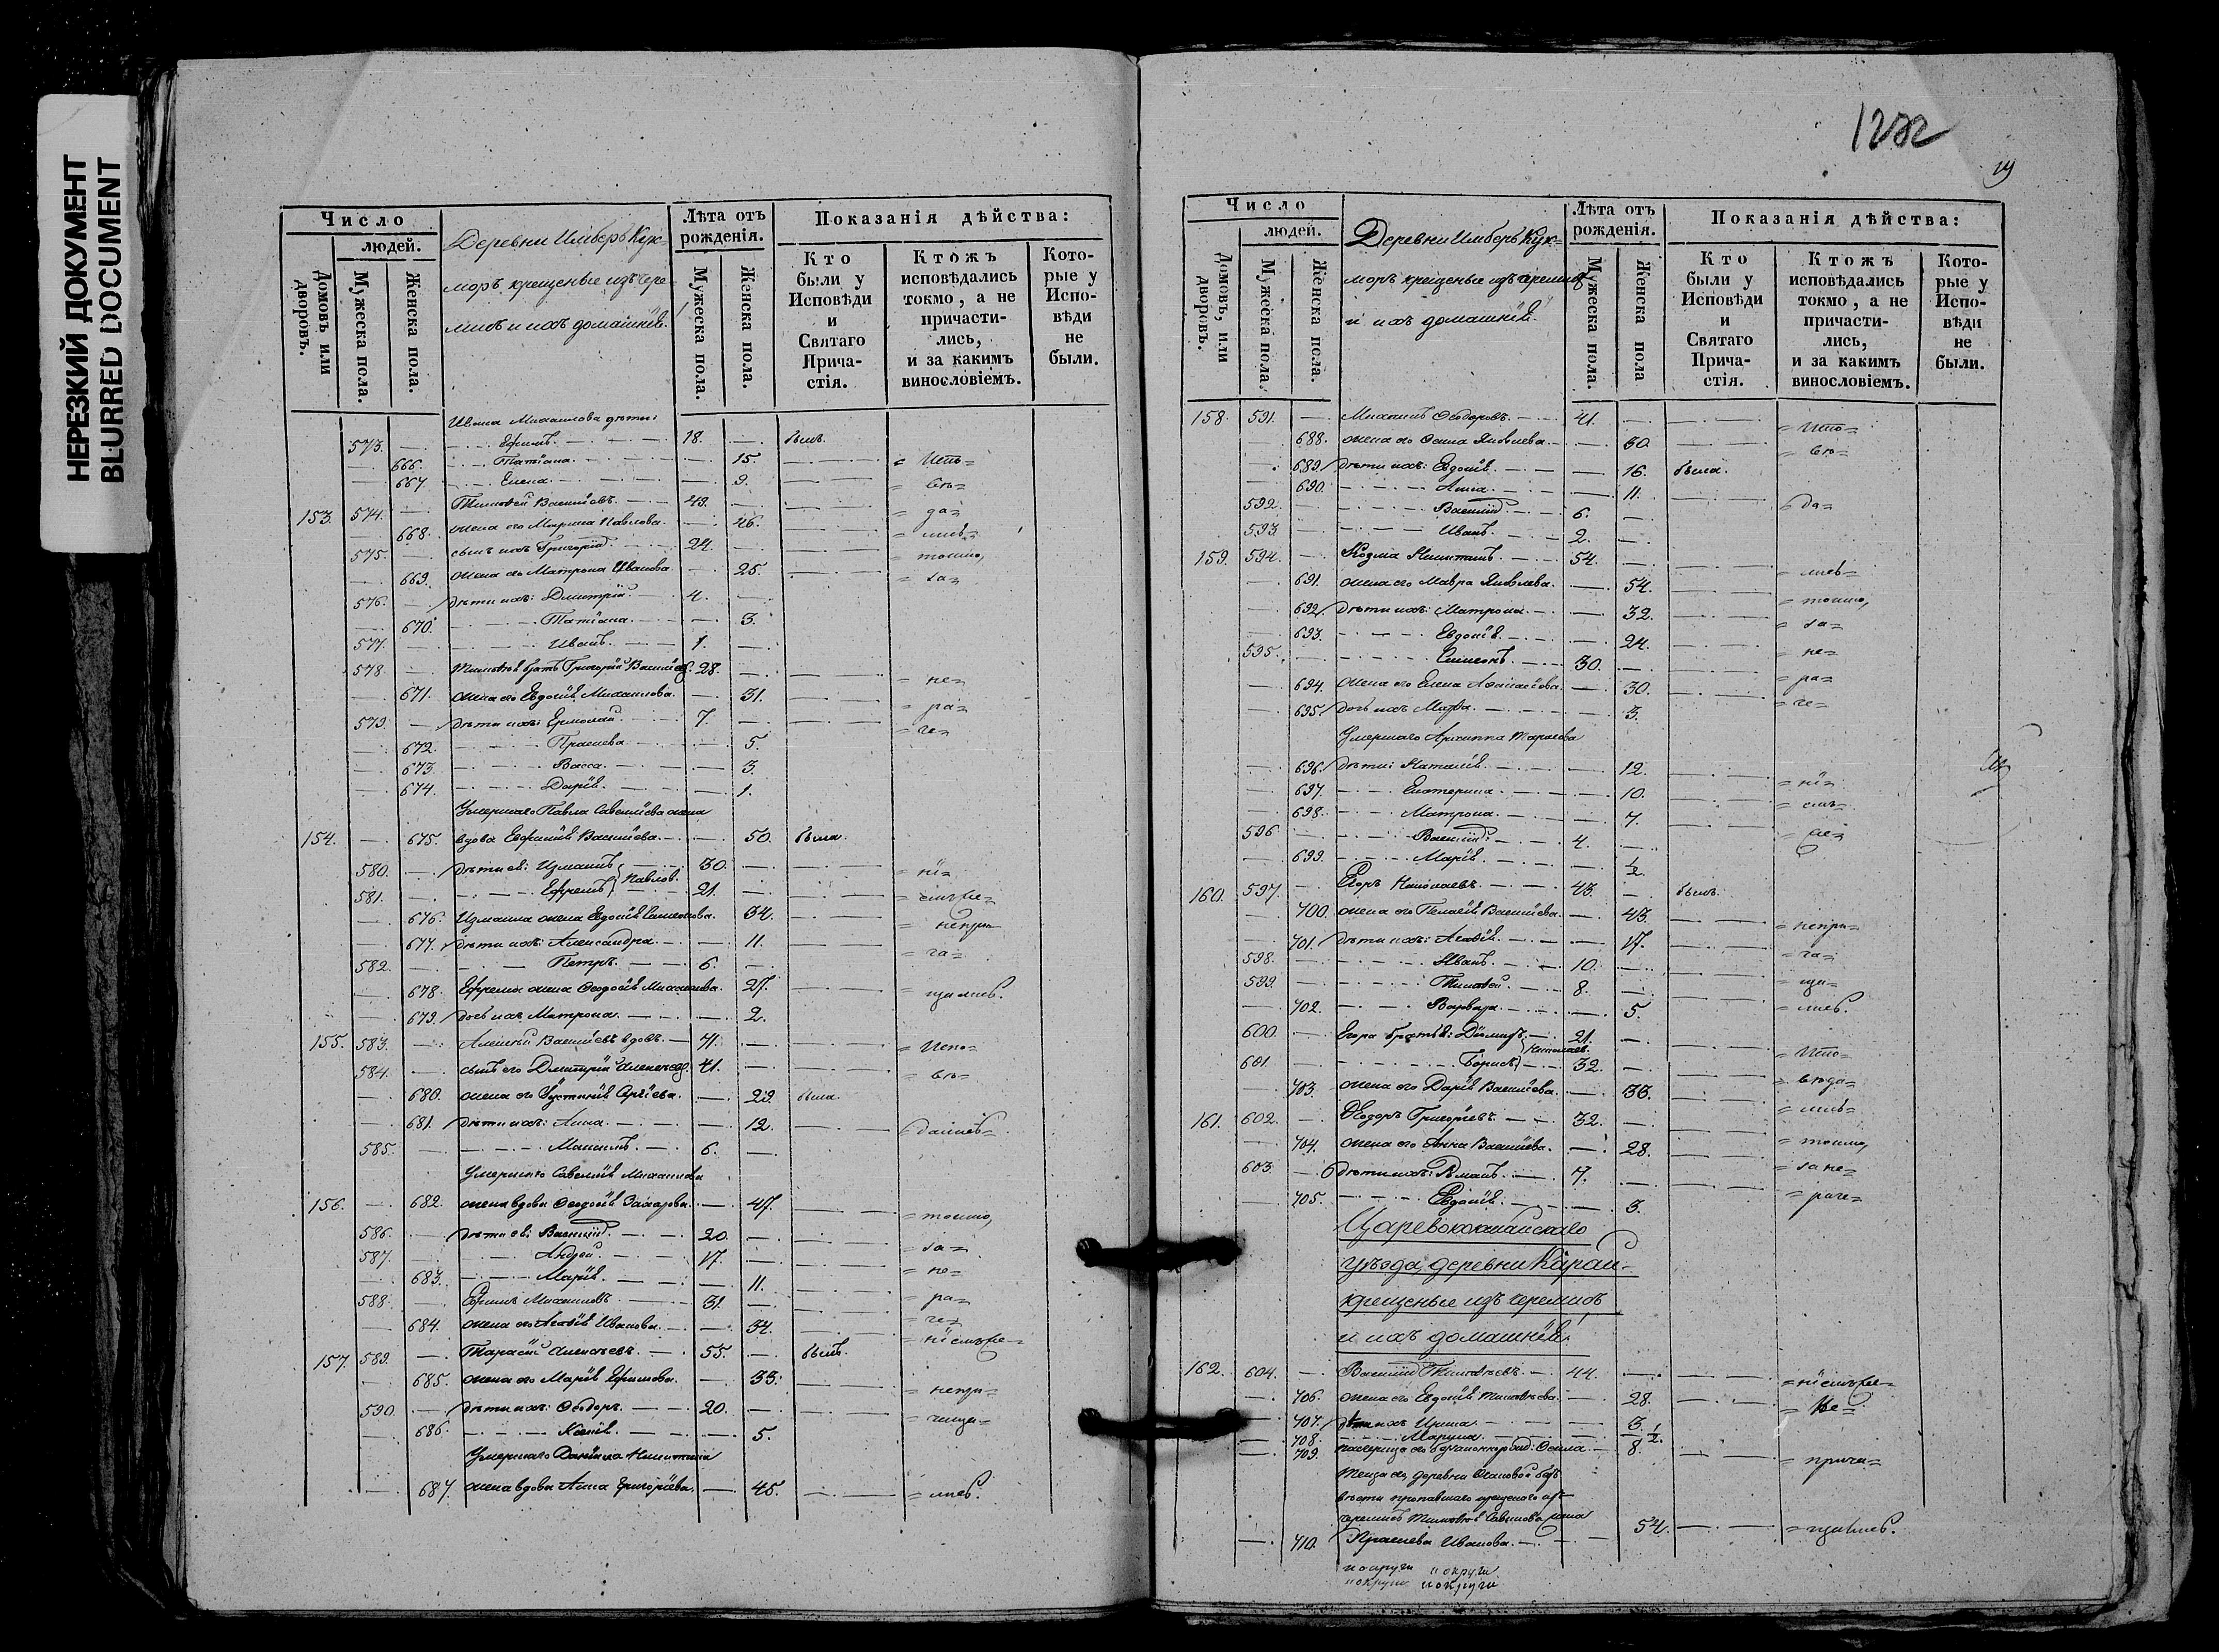 НЕРЕЗКИЙ ДОКУМЕНТ
BLURRED DOCUMENT
Число
людей.
Домовъ, или дворовъ.
Мужеска пола.
Женска пола.
Деревни Имберъ Кук=
моръ крещеные изъ чере=
мисъ и ихъ домашніе.
Лѣта отъ рожденія.
Мужеска пола.
Женска пола.
Показанія дѣйства:
Кто были у Исповѣди и Святаго Прича-стія.
Ктожъ исповѣдались токмо, а не причасти-лись, и за какимъ винословіемъ.
Кото-рые у Испо-вѣди не были.
Ивана Михаилова дѣти:
573. — Ефимъ. 18. — былъ.
— 666. Татіана. — 15. = Испо=
— 667. Елена. — 9. = вѣ=
153. 574. — Тимофей Васильевъ. 49. — = да=
— 668. жена его Марина Павлова. — 46. = лись=
575. — сынъ ихъ Григорій. 24. — = токмо,
— 669. жена его Матрона Иванова. — 25. = за=
576. — дѣти ихъ: Димитрій. 4. —
— 670. Татіана. — 3.
577. — Иванъ. 1. —
578. — Тимофея братъ Григорій Васильев. 28. — = не=
— 671. жена его Евдокія Михаилова. — 31. = ра=
579. — дѣти ихъ: Ермолай. 7. — = че=
— 672. Прасковья — 5.
— 673. Васса. — 3.
— 674. Дарія. — 1.
Умершаго Павла Савельева жена
154. — 675. вдова Евфимія Васильева. — 50. была.
580. — дѣти ея: Измаилъ 30. — = ні=
581. — Ефремъ } Павлов. 21. —
— 676. Измаила жена Евдокія Симеонова. — 34. = непри=
— 677. дѣти ихъ: Александра. — 11. = ча=
582. — Петръ. 6. —
— 678. Ефрема жена Ѳеодосія Михаилова. — 27. = щались.
— 679. дочь ихъ Матрона. — 2.
155. 583. — Алексѣй Васильевъ вдовъ. 71. — = Испо=
584. — сынъ его Димитрій Алексѣев. 41. — = вѣ=
680. жена его Устинія — 29. была.
— 681. дѣти ихъ: Анна. — 12. = дались=
585. — Максимъ. 6. —
Умершаго Савелія Михаилова
156. — 682. жена вдова Ѳеодосія Захарова. — 47. = токмо,
586. — дѣти ея: Василій. 20. — = за=
587. — Андрей. 17. — = не=
— 683. Марія. — 11.
588. — Ефимъ Михаиловъ 31. — = ра=
— 684. жена его Агафія Иванова. — 34. = че=
157. 589. — Тарасій Алексѣевъ. 55. — былъ.
— 685. жена его Марія Ефимова. — 53. = непри=
590. — дѣти ихъ: Ѳеодоръ. 20. —
— 686. — 5.
Умершаго Даніила Никитина
— 687. жена вдова Анна Григорьева. — 45. = лись.
1232
19
Число
людей.
Домовъ, или дворовъ.
Мужеска пола.
Женска пола.
Деревни Имберъ Кук=
моръ крещеные изъ черемисъ
и ихъ домашніе.
Лѣта отъ рожденія.
Мужеска пола.
Женска пола
Показанія дѣйства:
Кто были у Исповѣди и Святаго Прича-стія.
Ктожъ исповѣдались токмо, а не причасти-лись, и за какимъ винословіемъ.
Кото-рые у Испо-вѣди не были.
158. 591. — Михаилъ Ѳеодоровъ. 41. — = Испо=
688. жена его Яковлева. — 50. = вѣ=
689. дѣти ихъ: Евдокія. — 16. была.
690. Анна. — 11.
592. — Василій. 6. — = да=
593 — Иванъ. 2. —
159. 594. — Козма Никитинъ. 54. — = лись=
— 691. жена его Мавра Яковлева. — 54. = токмо,
— 692. дѣти ихъ: Матрона. — 32. = за=
— 693. Евдокія. — 24. = не=
595. — Симеонъ. 30. — = ра=
— 694. жена его Елена Аѳанасіева. — 30. = че=
— 695. дочь ихъ Марѳа. — 3.
Умершаго Архиппа Тарасова
— 696. дѣти: Наталія. — 12. = ні=
— 697. Екатерина. — 10.
— 698. Матрона. — 7.
596 — Василій. 4. —
— 699. Марія. — 1/2.
160. 597. — Егоръ Николаевъ. 43. — былъ.
— 700. жена его Пелагія Васильева. — 43. = непри=
— 701. дѣти ихъ: Агафія. — 17. = ча=
598. — Иванъ. 10. — = ща=
599. — Тимофей. 8. — = лись.
— 702. Варвара. — 5.
600. — Егора братья: 21. — = Испо=
601. — Борисъ } Николаев. 32. — = вѣда=
— 703. жена его Дарія Васильева. — 33. = лись=
161. 602. — Ѳеодоръ Григорьевъ. 32. — = токмо,
— 704. жена его Анна Васильева. — 28. = за не=
603. — дѣти ихъ: Романъ. 7. — = раче=
— 705. Евдокія. — 3.
Царевококшайскаго
уѣзда, деревни Карай=
крещеные изъ черемисъ
и ихъ домашніе.
162. 604. — Василій Тимофеевъ. 44. —
— 706. жена его Евдокія Тимофеева. — 28. = не=
— 707. дѣти ихъ Ирина. — 3.
— 708. — 1/2.
— 709. падчерица его — 8. = прича=
Теща его, деревни безъ
вѣсти пропавшаго крещенаго изъ
черемисъ Тимофея жена
— 710. Прасковья Иванова. — 54. = щались.